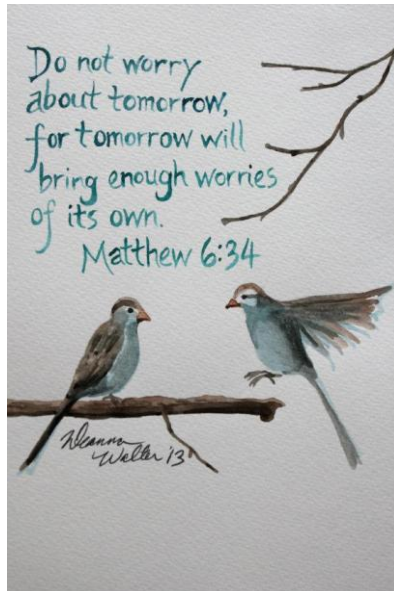 Do not worry
about tomorrow,
for tomorrow will
bring enough worries
of its own.
Matthew 6:34
Deanna
Waller '13